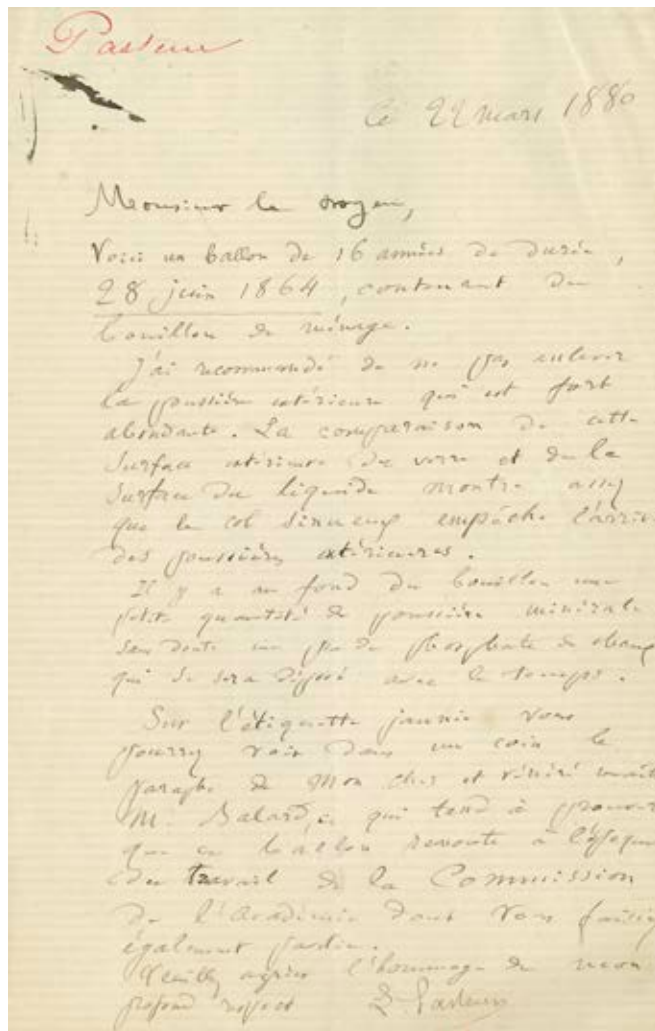 Pasteur
le 22 mars 1880
Monsieur le Doyen,
Voici un ballon de 16 années de durée,
28 juin 1864, contenant du
bouillon de ménage.
J'ai recommandé de ne pas enlever
la poussière extérieure qui est fort
abondante. La comparaison de cette
surface extérieure du verre et de la
surface du liquide montre assez
que le col sinueux empêche l'arriv
des poussières extérieures.
Il y a au fond du bouillon une
petite quantité de poussière minérale
sans doute un peu de phosphate de chaux
qui se sera déposé avec le temps.
Sur l'étiquette jaunie vous
pourrez voir dans un coin le
paraphe de mon cher et vénéré maît
M. Balard, ce qui tend à prouver
que ce ballon remonte à l'époque
du travail de la Commission
de l'Académie dont vous faisiez
également partie.
Veuillez agréer l'hommage de mon
profond respect L. Pasteur